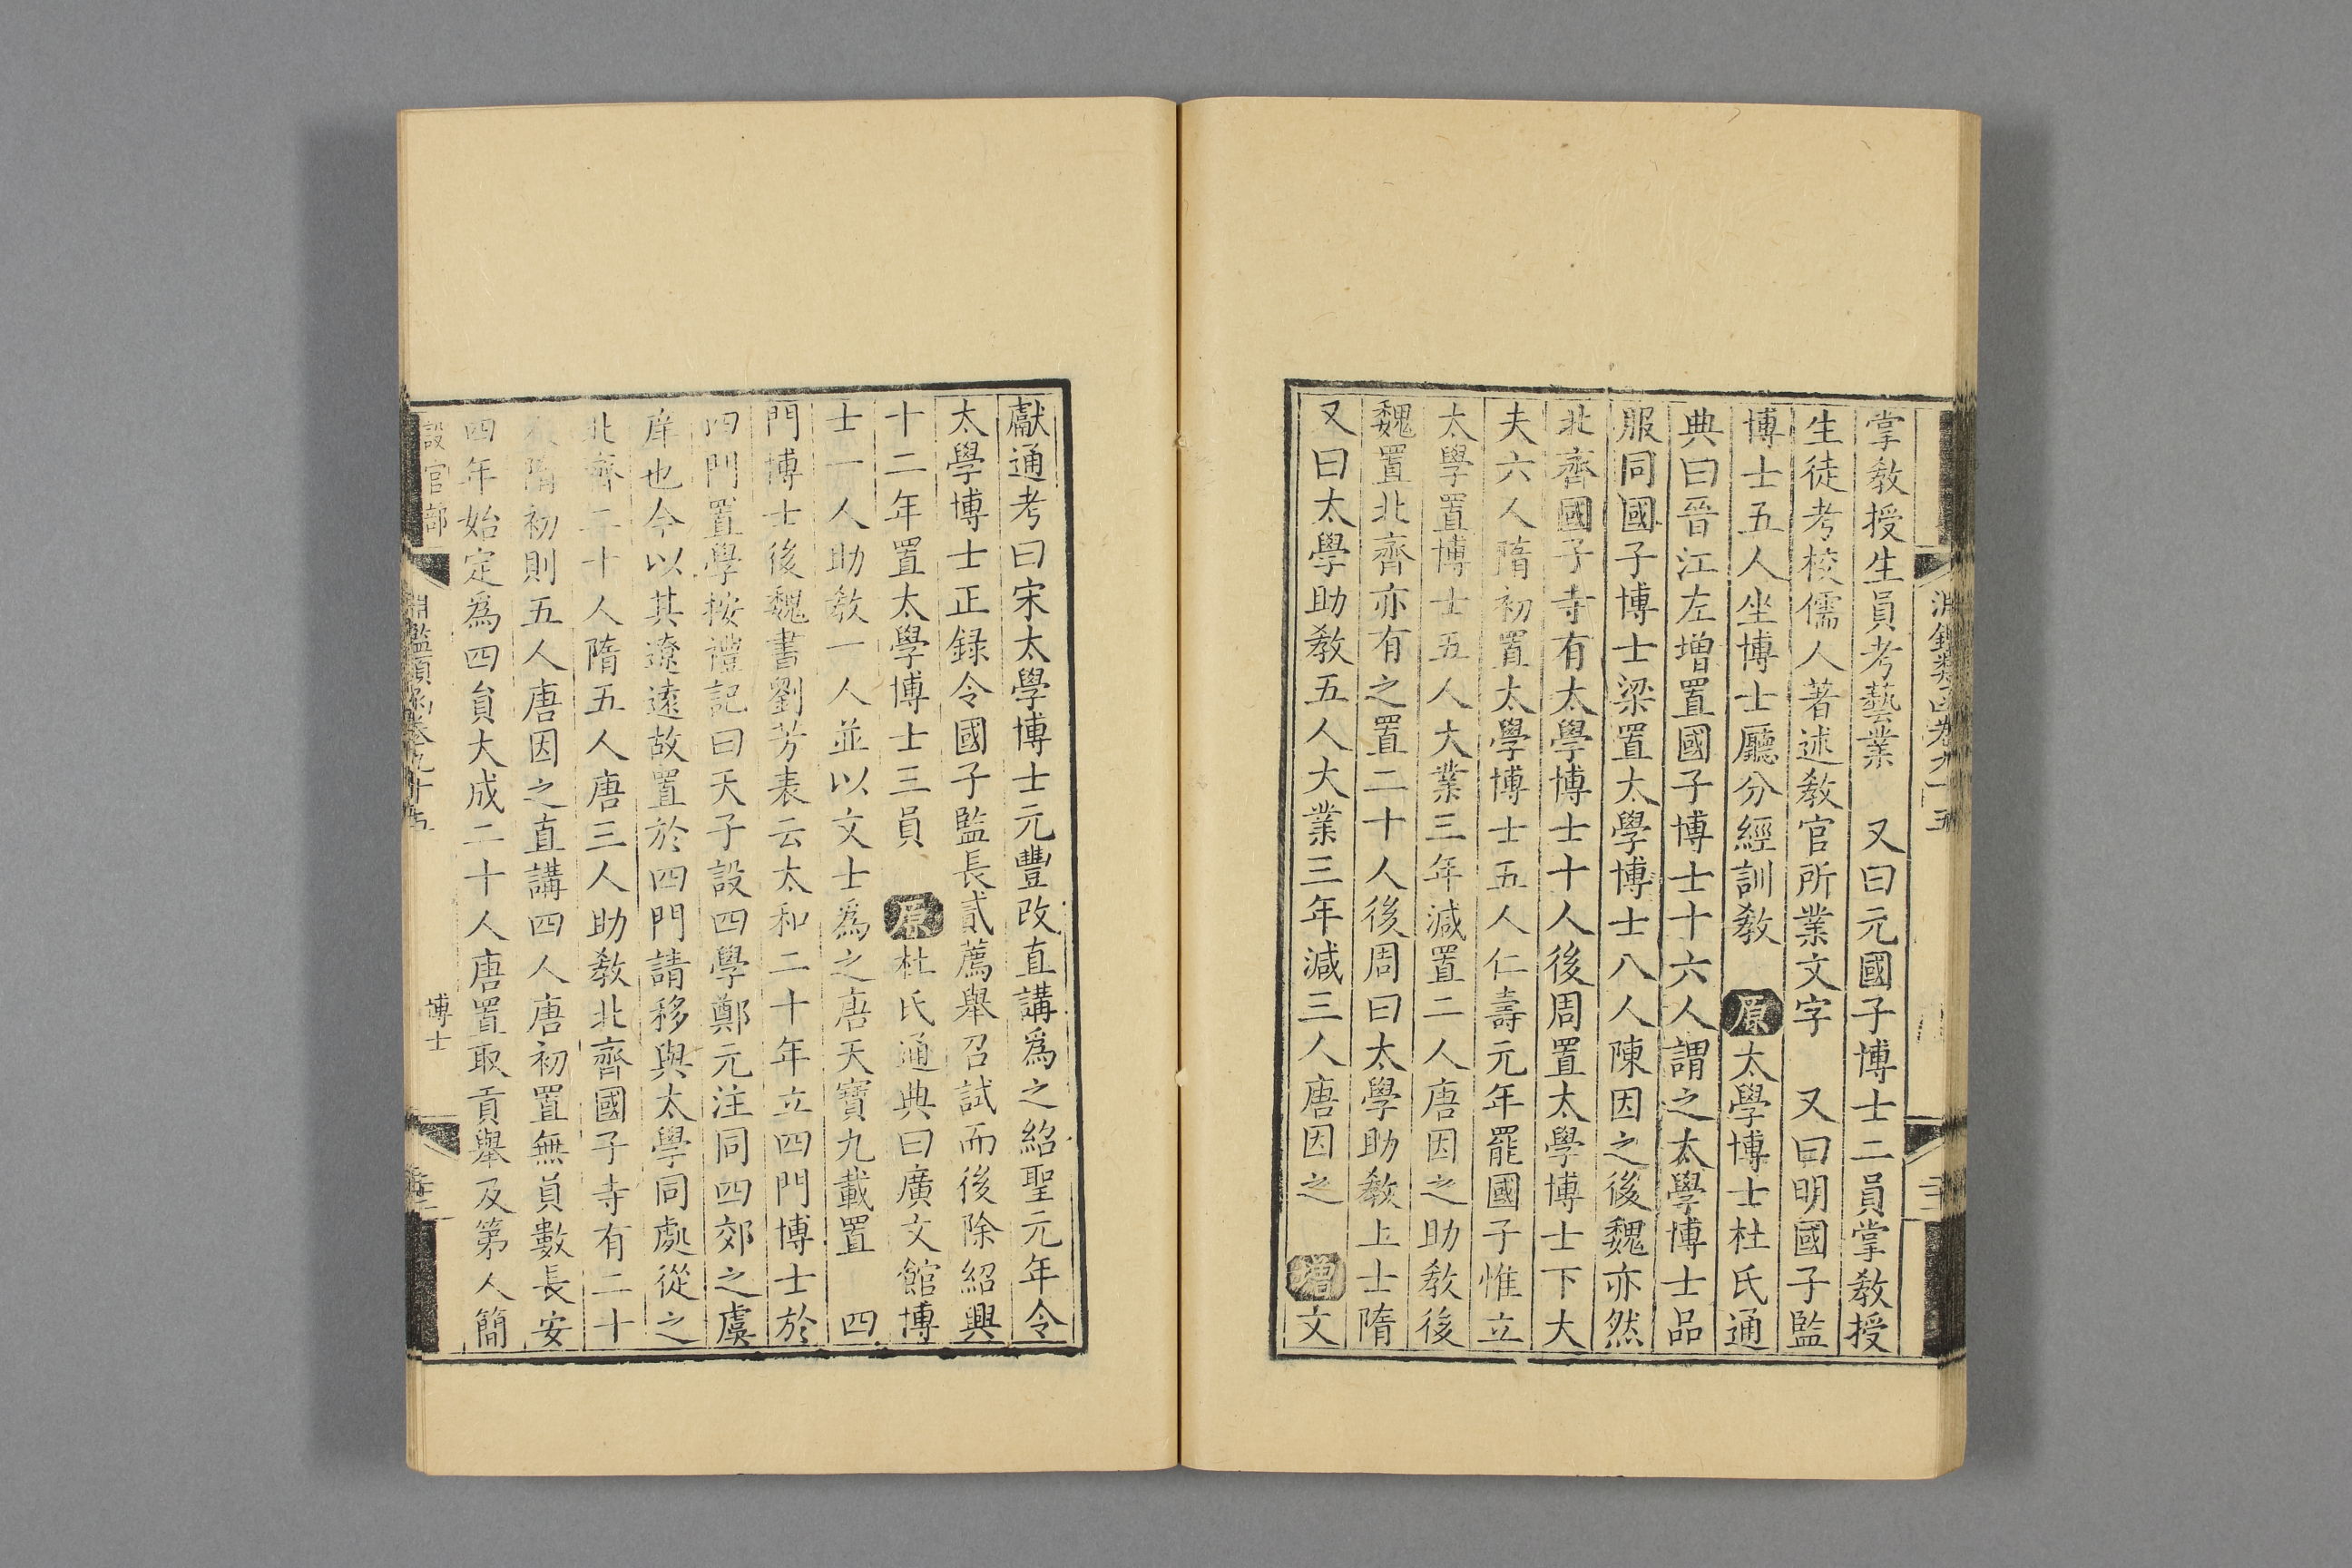 掌教授生員考藝業　又曰元國子博士二員掌教授
生徒考校儒人著述教官所業文字　又曰明國子監
博士五人坐博士廳分經訓教　原太學博士杜氏通
典曰晉江左增置國子博士十六人謂之太學博士品
服同國子博士梁置太學博士八人陳因之後魏亦然
北齊國子寺有太學博士十人後周置太學博士下大
夫六人隋初置太學博士五人仁壽元年罷國子惟立
太學置博士五人大業三年減置二人唐因之助教後
魏置北齊亦有之置二十人後周曰太學助教上士隋
又曰太學助教五人大業三年減三人唐因之　增文
獻通考曰宋太學博士元豐改直講爲之紹聖元年令
太學博士正録令國子監長貳薦舉召試而後除紹興
十二年置太學博士三員　原杜氏通典曰廣文館博
士一人助教一人並以文士爲之唐天寶九載置　四
門博士後魏書劉芳表云太和二十年立四門博士於
四門置學按禮記曰天子設四學鄭元注同四郊之虞
庠也今以其遼遠故置於四門請移與太學同處從之
北齊二十人隋五人唐三人助教北齊國子寺有二十
人隋初則五人唐因之直講四人唐初置無員數長安
四年始定爲四員大成二十人唐置取貢舉及第人簡
設官部
淵鑑類函卷九十五
博士